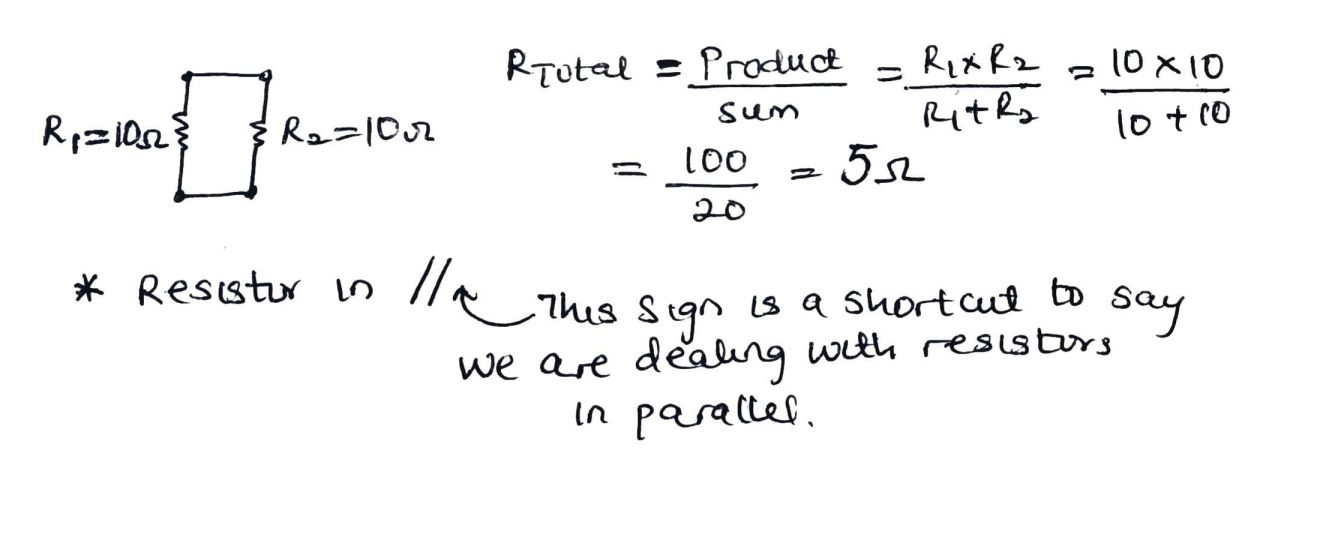 R1=10Ω R2=10Ω
RTotal = Product/sum = R1×R2/R1+R2 = 10×10/10+10
= 100/20 = 5Ω
* Resistor in // This sign is a shortcut to say
we are dealing with resistors
in parallel.